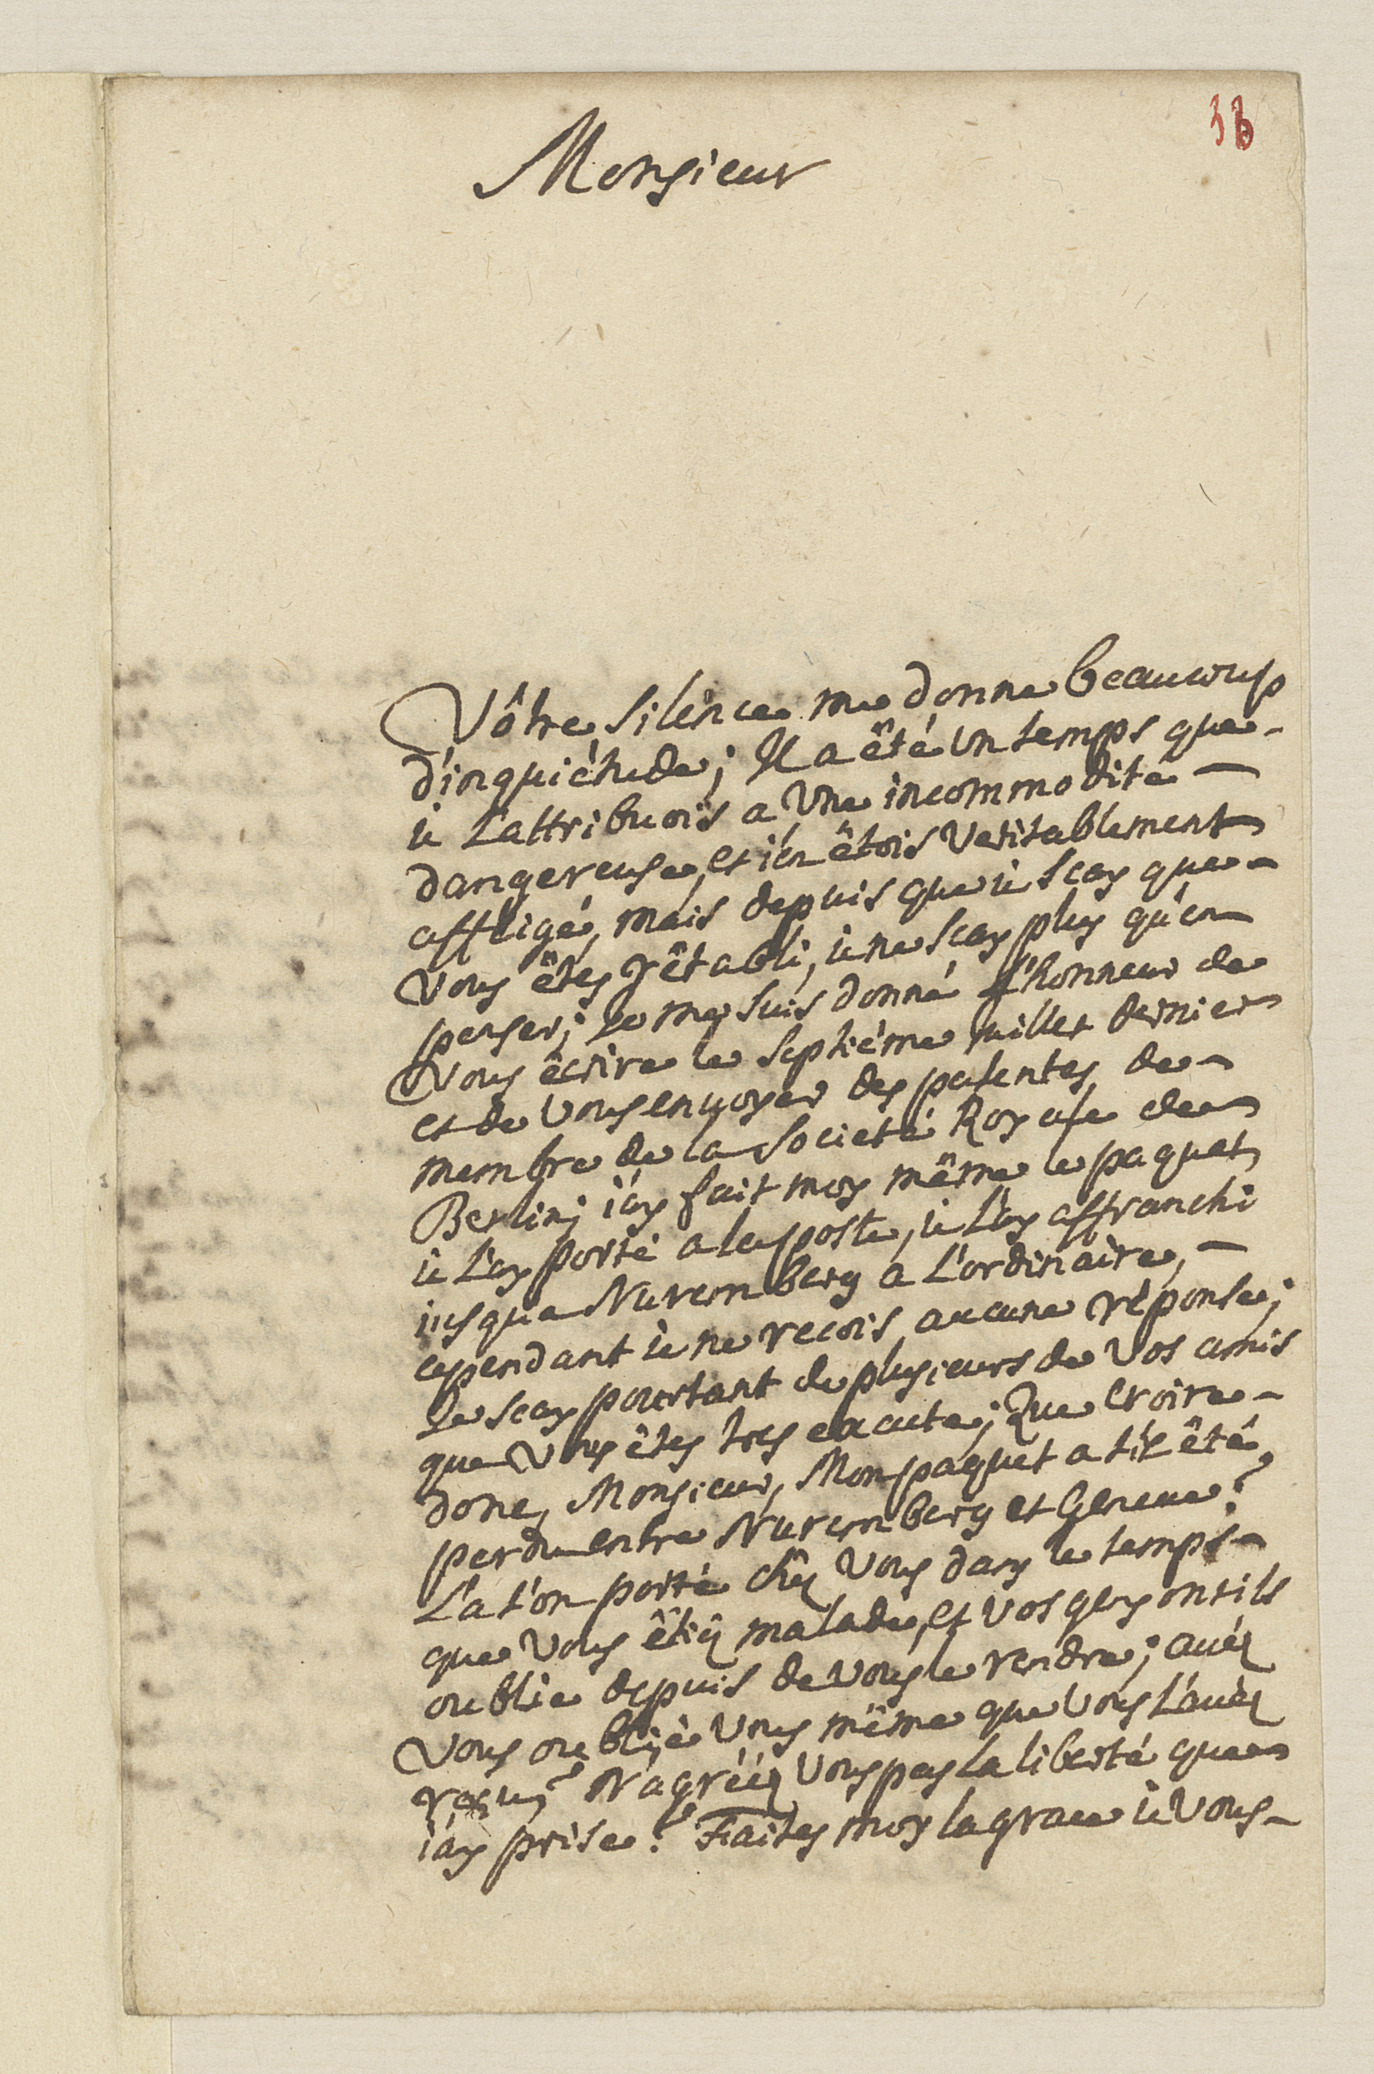 38
Monsieur
Vôtre silence me donne beaucoup
d'inquiétude; Il a êté Un temps que
ie L'attribuois a Une incommodité
dangereuse, et i'en êtois Veritablement
affligé, mais depuis que ie scay que
Vous êtes rétabli, ie ne scay plus qu'en
penser; Ie me suis donné l'honneur de
Vous êcrire le septiéme Iuillet dernier
et de Vous enuoyer des patentes de
membre de la Societé Royale de
Berlin; i'ay fait moy même le paquet
ie L'ay porté a la poste, ie L'ay affranchi
iusqu'a Nuremberg a L'ordinaire,
cependant ie ne recois aucune réponse;
Ie scay pourtant de plusieurs de Vos amis
que Vous êtes tres exacte; Que Croire
donc, Monsieur, Mon paquet a til êté
perdu entre Nuremberg et Geneue?
L'a t'on porté chés Vous dans le temps
que Vous êtiés malade, et Vos gens ont ils
oublié depuis de Vous le rendre; aués
Vous oublié Vous même que Vous L'aués
recu? N'agréés Vous pas la liberté que
i'ay prise? Faites moy la grace ie Vous